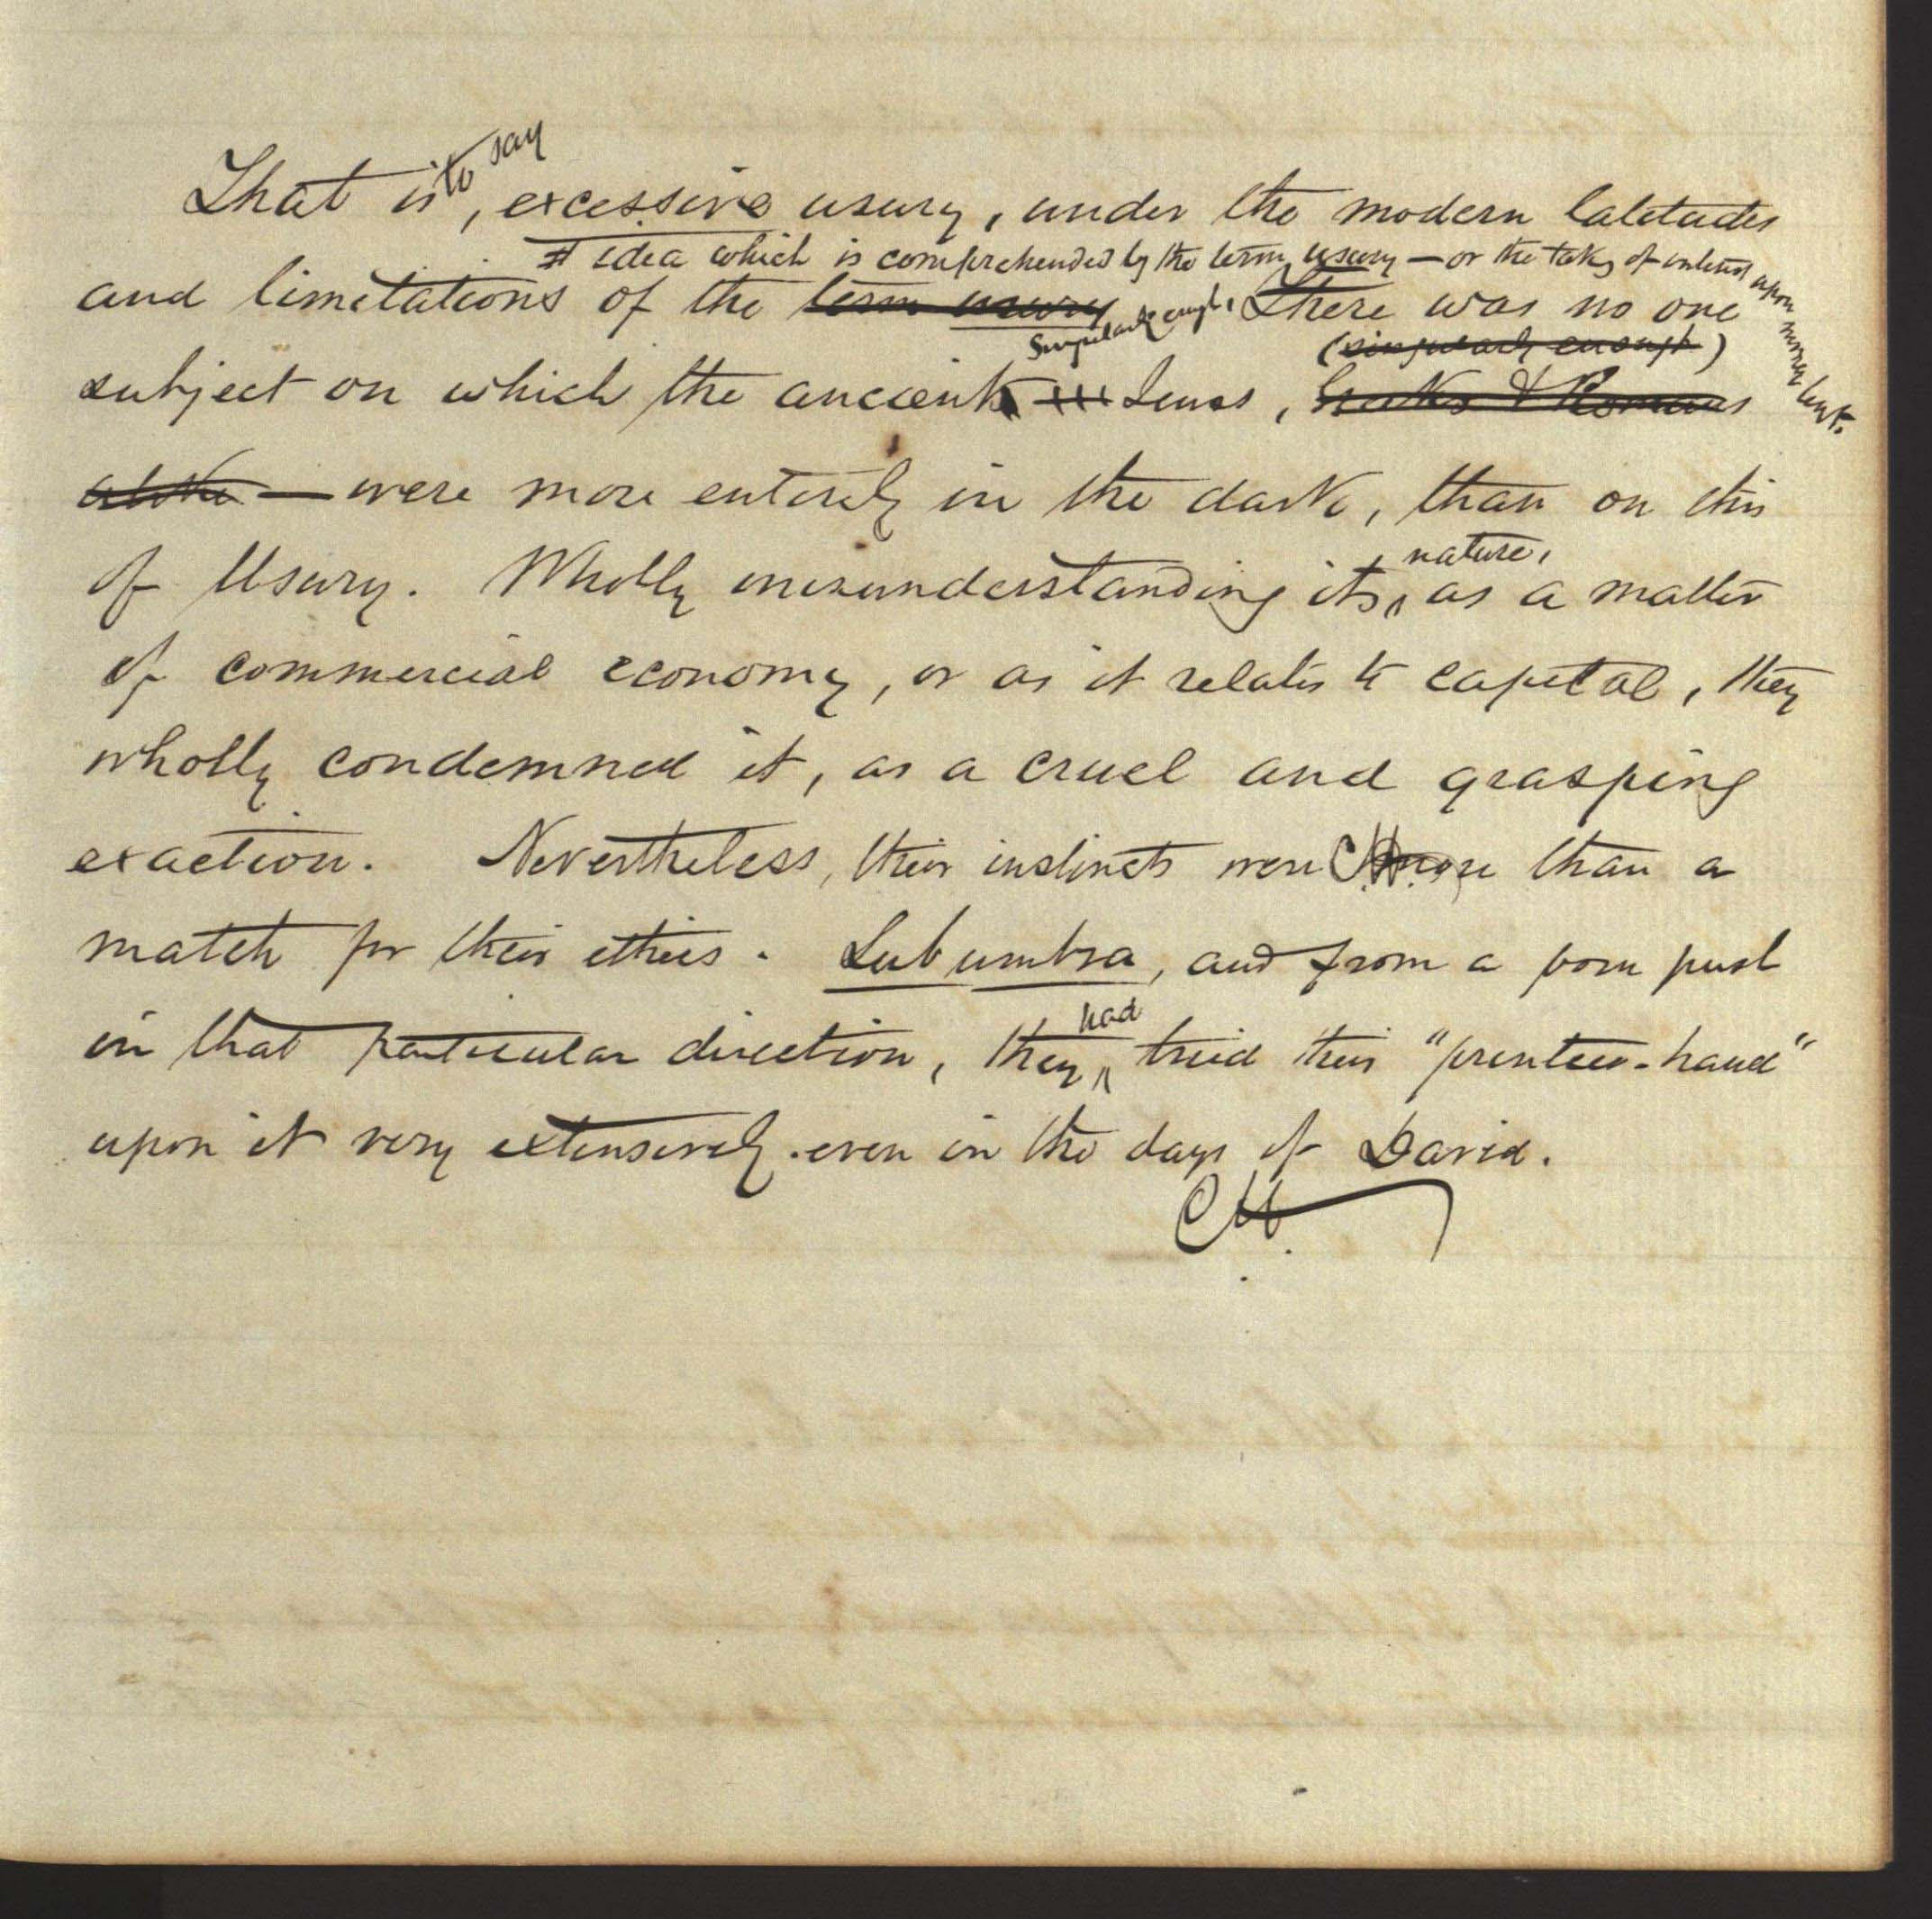 to say
That is, excessive usury, under the modern latitudes
idea which is comprehended by the term usury — or the takg of interest upon money lent.
and limitations of the term usury Singularly enough, There was no one
(singularly enough)
subject on which the ancient Jews, Greeks & Romans
alike — were more entirely in the dark, than on this
nature,
of Usury. Wholly misunderstanding its, as a matter
of commercial economy, or as it relates to capital, they
wholly condemned it, as a cruel and grasping
exaction. Nevertheless, their instincts were more than a
match for their ethics. Sub umbra, and from a born push
had
in that particular direction, they tried their "prentice-hand"
upon it very extensively even in the days of David.
CH.